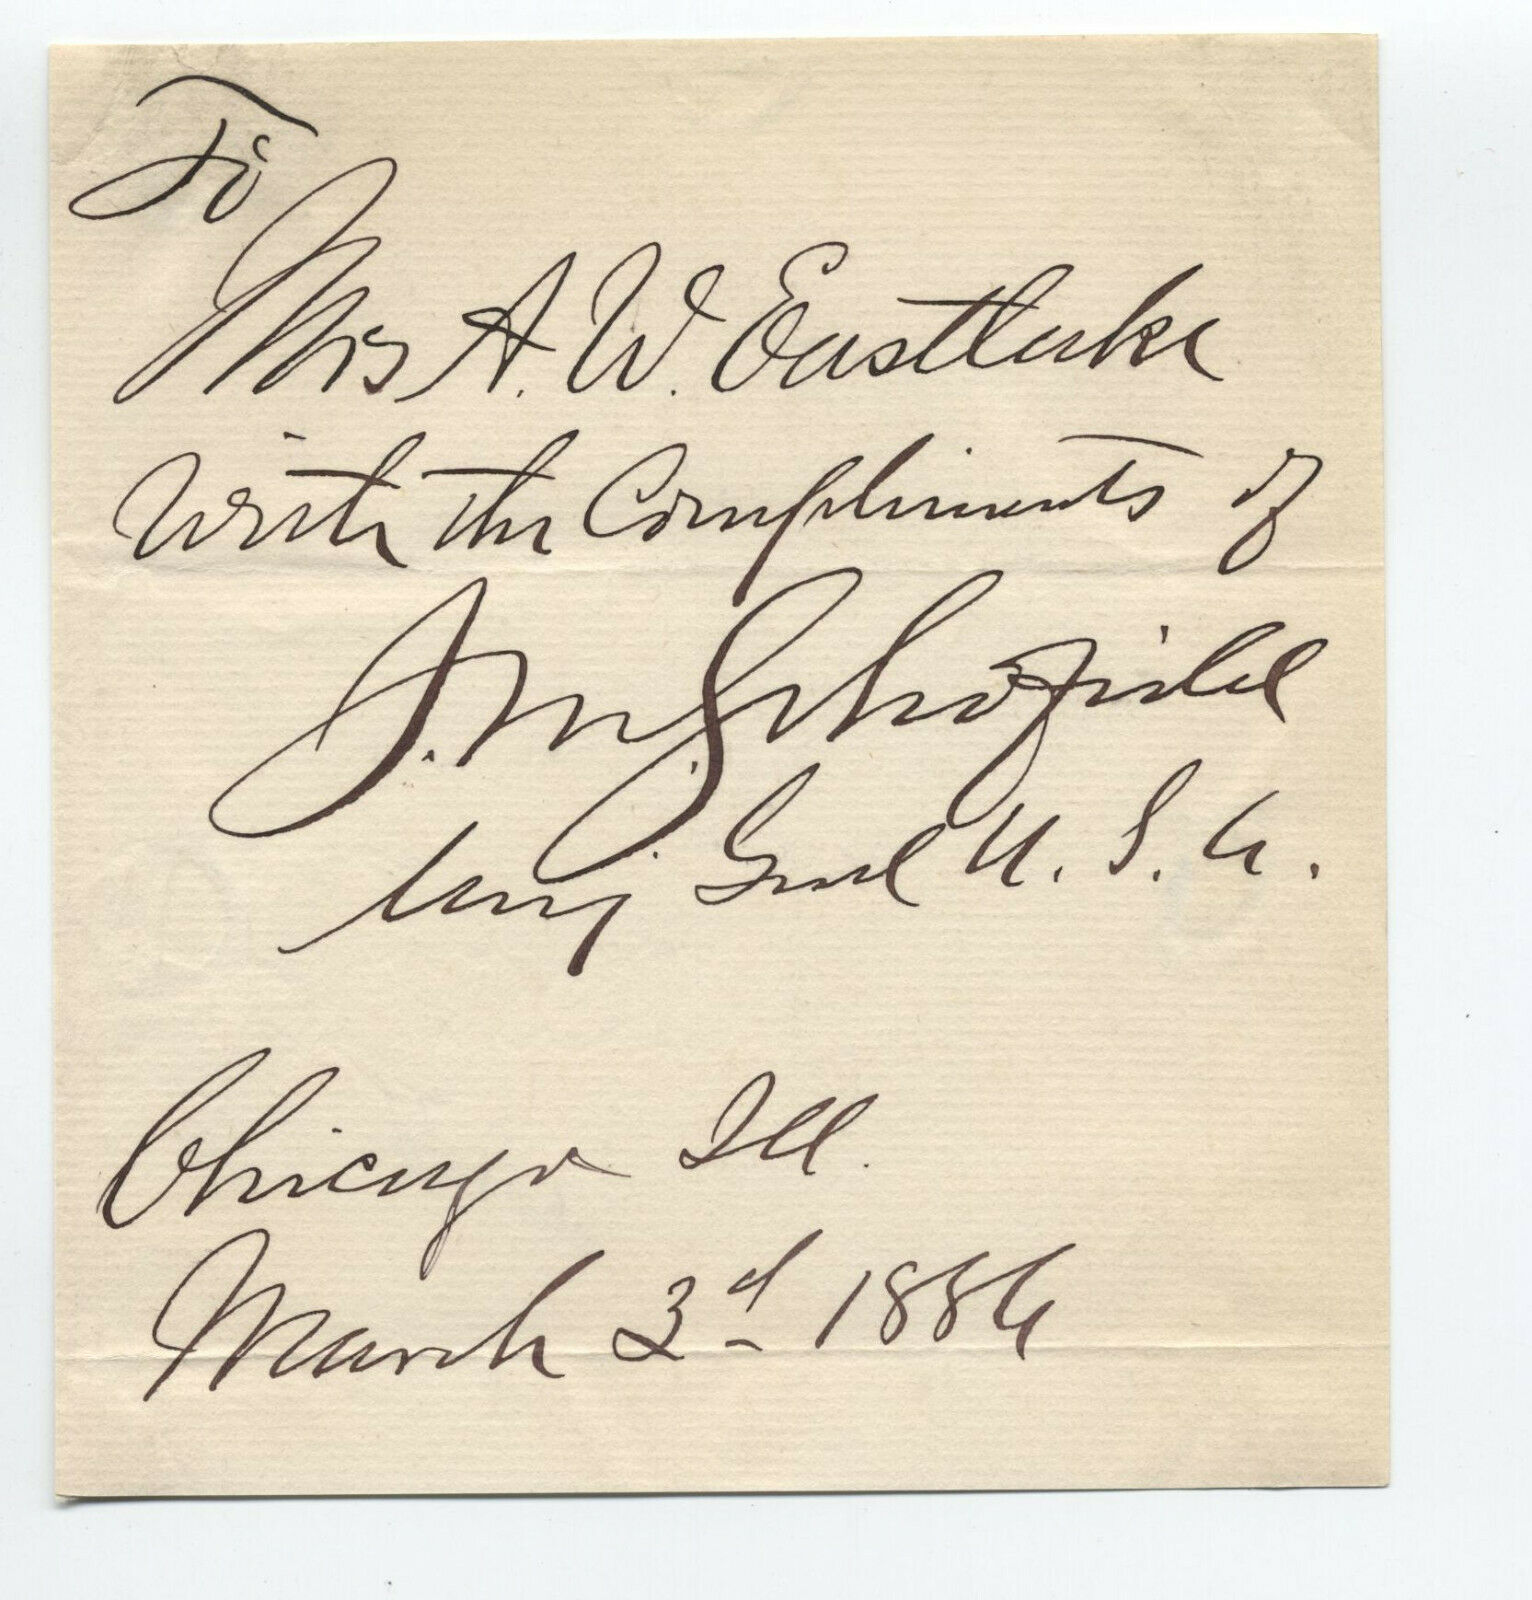 To
Mrs A. W. Eastlake
With the Compliments of
J. M. Schofield
Maj. Genl U. S. A.
Chicago Ill.
March 3d 1886